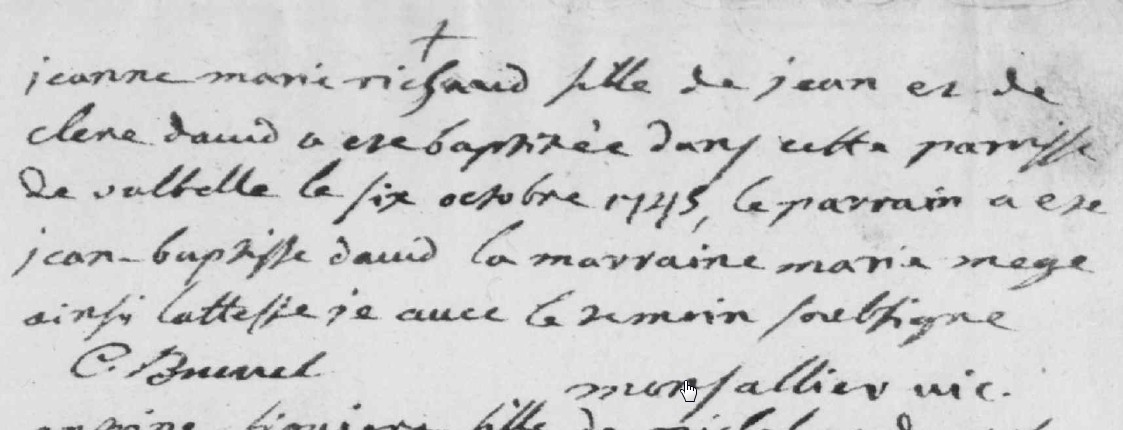 jeanne marie richaud fille de jean et de
clere david a ete baptizèe dans cette parroisse
de valbelle le six octobre 1745, le parrain a ete
jean-baptiste david la marraine marie mege
ainsi latteste je avec le temoin soubsigne
C. Brunel monsallier vic.
fille de